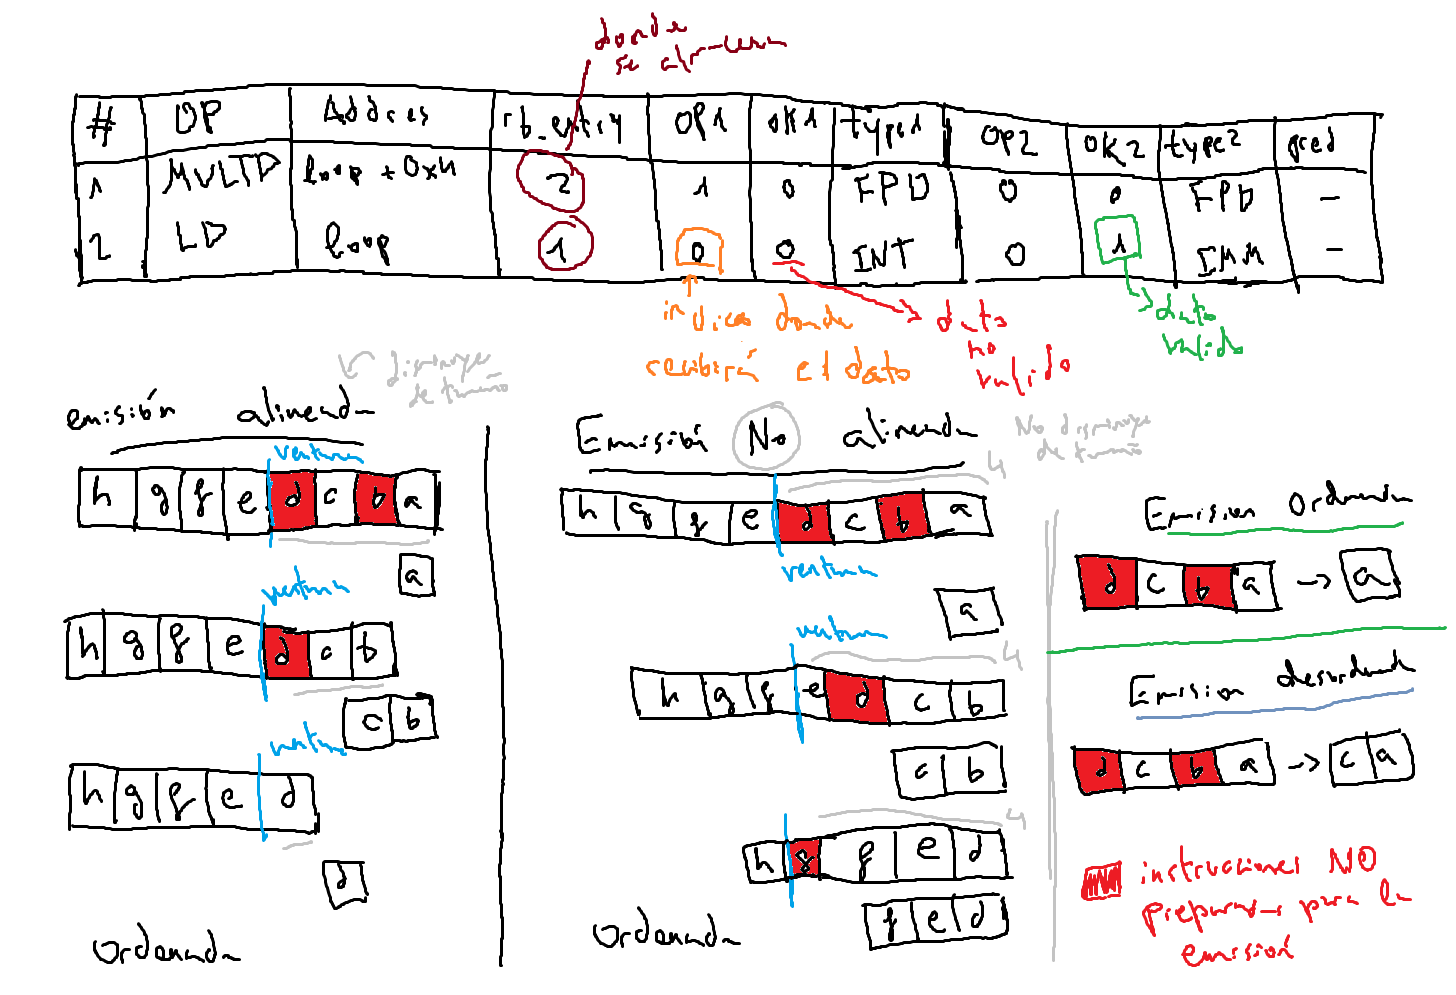 donde
se almacena
# OP Addres rb_entry OP1 OK1 type1 OP2 OK2 type2 pred
1 MULTD loop + 0x4 2 1 0 FPD 0 0 FPD -
2 LD loop 1 0 0 INT 0 1 IMM -
indica donde
recibirá el dato
dato
no
valido
dato
valido
disminuye
de tamaño
emisión alineada
ventana
h g f e d c b a
a
ventana
h g f e d c b
c b
ventana
h g f e d
d
Ordenada
Emisión No alineada
No disminuye
de tamaño
4
h g f e d c b a
ventana
a
ventana
4
h g f e d c b
c b
4
h g f e d
f e d
Ordenada
Emision Ordenada
d c b a -> a
Emision desordenada
d c b a -> c a
instrucciones NO
preparadas para la
emisión